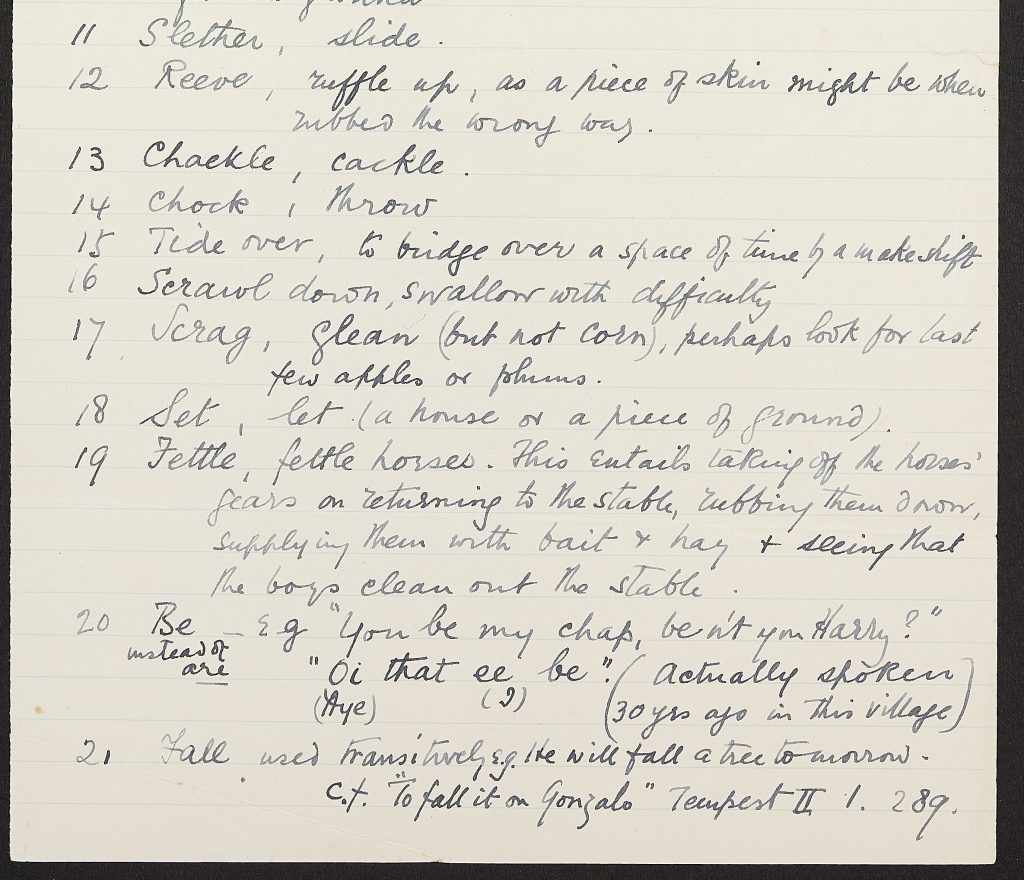 11 Slether, slide.
12 Reeve, ruffle up, as a piece of skin might be when
rubbed the wrong way.
13 Chackle, cackle.
14 Chock, throw
15 Tide over, to bridge over a space of time by a makeshift
16 Scrawl down, swallow with difficulty
17 Scrag, glean (but not corn), perhaps look for last
few apples or plums.
18 Set, let (a house or a piece of ground).
19 Fettle, fettle horses. This entails taking off the horses'
gears on returning to the stable, rubbing them down,
supplying them with bait & hay & seeing that
the boys clean out the stable.
20 Be — Eg "You be my chap, be n't you Harry?"
instead of
are "Oi that ee be". (Actually spoken
(Aye) (I) 30 yrs ago in this village)
21 Fall used transitively e.g. He will fall a tree to-morrow.
c.f. "To fall it on Gonzalo" Tempest II 1. 289.